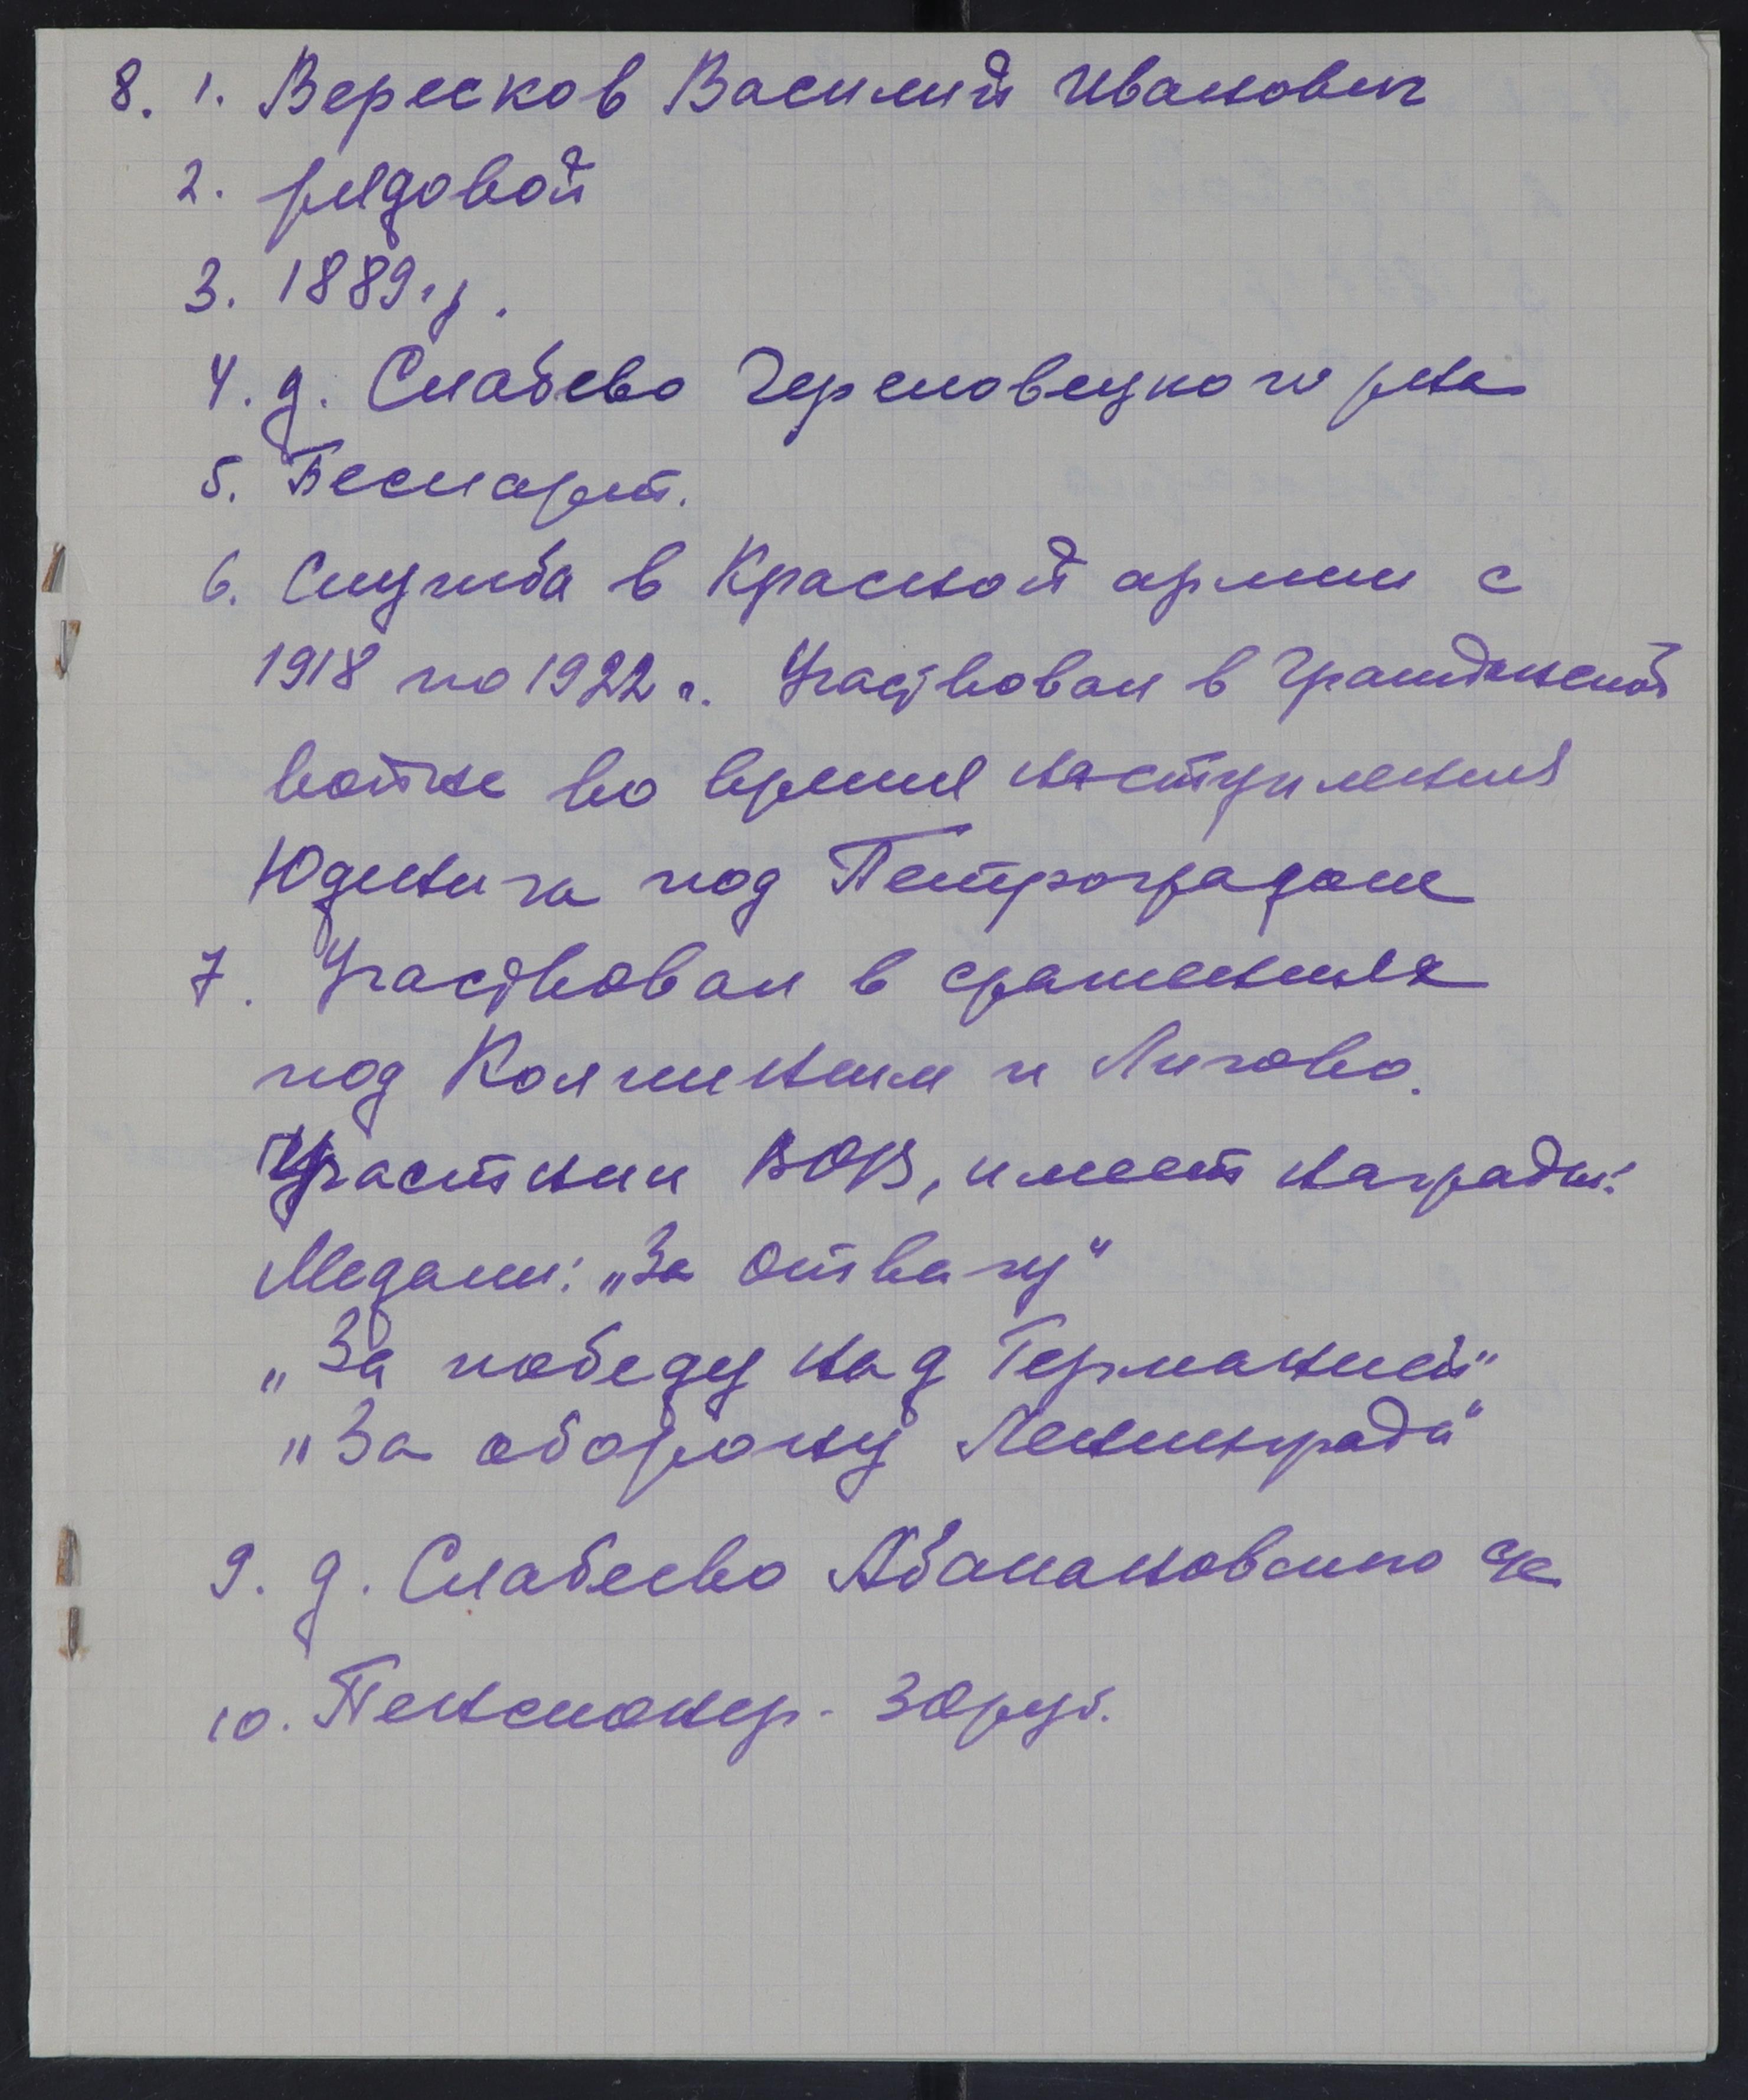 8. 1. Вересков Василий Иванович
2. рядовой
3. 1889 г.р.
4. д. Слабево Череповецкого р-на
5. Беспарт.
6. Служба в Красной армии с
1918 по 1922 г. Участвовал в Гражданской
войне во время наступления
Юденича под Петроградом
7. Участвовал в сражениях
под Колпиным и Лигово.
Участник ВОВ, имеет награды:
Медали: „За Отвагу“
„За победу над Германией“
„За оборону Ленинграда“
9. д. Слабеево Абакановского с/с
10. Пенсионер - 30 руб.